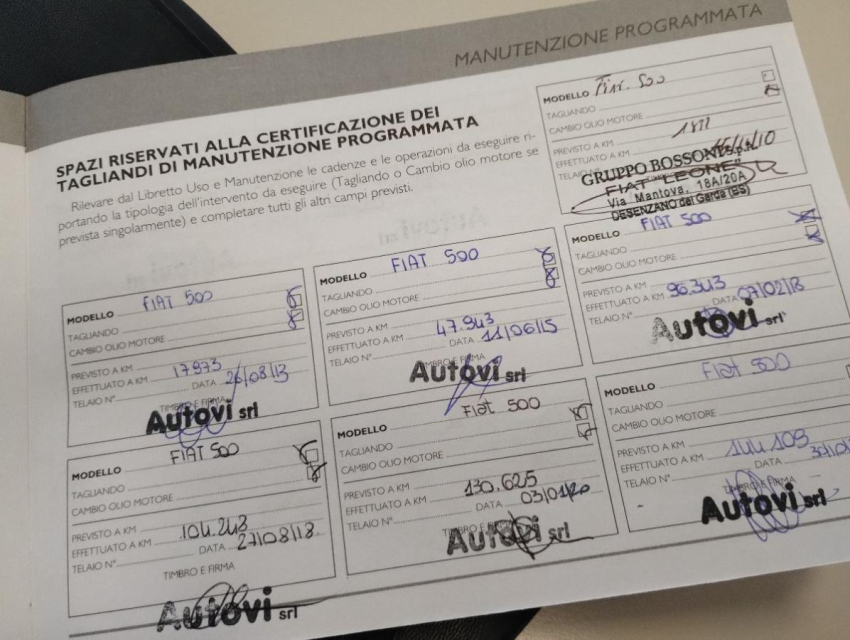 MANUTENZIONE PROGRAMMATA
SPAZI RISERVATI ALLA CERTIFICAZIONE DEI
TAGLIANDI DI MANUTENZIONE PROGRAMMATA
Rilevare dal Libretto Uso e Manutenzione le cadenze e le operazioni da eseguire ri-
portando la tipologia dell'intervento da eseguire (Tagliando o Cambio olio motore se
prevista singolarmente) e completare tutti gli altri campi previsti.
MODELLO
TAGLIANDO
CAMBIO OLIO MOTORE
PREVISTO A KM
EFFETTUATO A KM
GRUPPO BOSSONI
FIAT "LEONE"
Via Mantova, 18A/20A
DESENZANO del Garda (BS)
MODELLO FIAT 500
TAGLIANDO
CAMBIO OLIO MOTORE
PREVISTO A KM
EFFETTUATO A KM 17.973 DATA 26/08/13
TELAIO N°
TIMBRO E FIRMA
Autovi srl
MODELLO FIAT 500
TAGLIANDO
CAMBIO OLIO MOTORE
PREVISTO A KM
EFFETTUATO A KM 47.943 DATA 11/06/15
TELAIO N°
TIMBRO E FIRMA
Autovi srl
MODELLO FIAT 500
TAGLIANDO
CAMBIO OLIO MOTORE
PREVISTO A KM
EFFETTUATO A KM 96.343 DATA 07/02/18
TELAIO N°
Autovi srl
MODELLO FIAT 500
TAGLIANDO
CAMBIO OLIO MOTORE
PREVISTO A KM
EFFETTUATO A KM 104.243 DATA 27/08/18
TELAIO N°
TIMBRO E FIRMA
Autovi srl
MODELLO Fiat 500
TAGLIANDO
CAMBIO OLIO MOTORE
PREVISTO A KM
EFFETTUATO A KM 130.625 DATA 03/01/20
TELAIO N°
TIMBRO E FIRMA
Autovi srl
MODELLO Fiat 500
TAGLIANDO
CAMBIO OLIO MOTORE
PREVISTO A KM
EFFETTUATO A KM 144.109 DATA
TELAIO N°
TIMBRO E FIRMA
Autovi srl